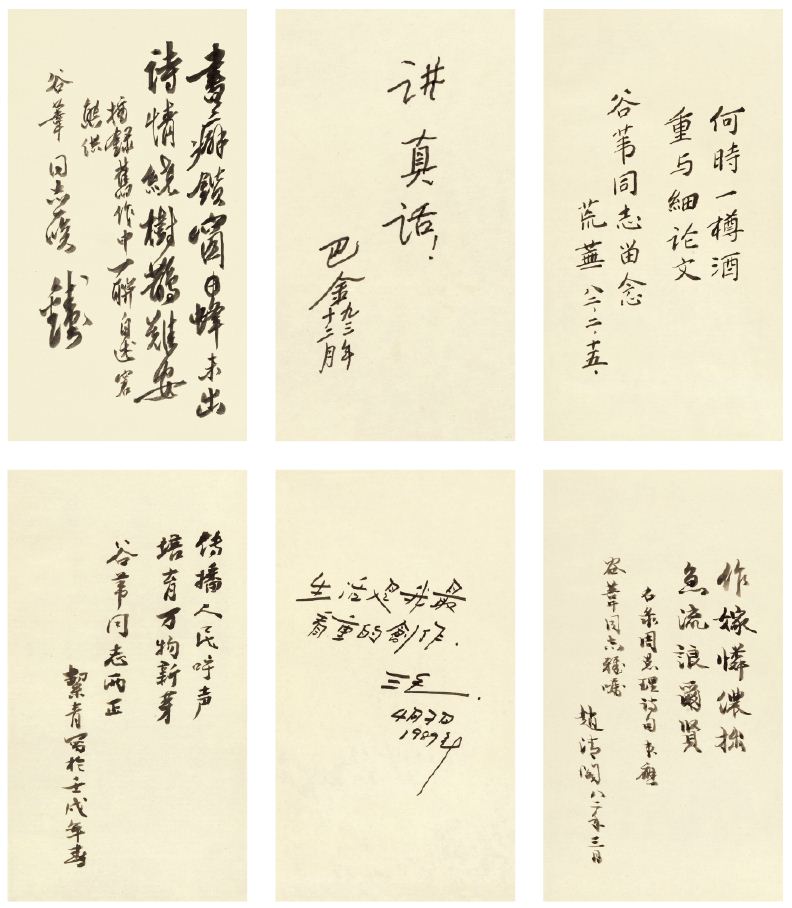 書癖鑽窗蜂未出
詩情繞樹鵲難安
摘錄舊作中一聯自述窘
態供
谷葦同志噱
讲真话!
巴金
九三年
十二月
何時一樽酒
重与細论文
谷苇同志留念
荒蕪 八二、二、十五、
传播人民呼声
培育万物新芽
谷苇同志两正
絜青写於壬戌年春
生活是我最
看重的創作.
三毛.
4月7日
1989年
作嫁憐儂拙
急流浪爾賢
谷葦同志雅嘱
趙清閣八二年三月